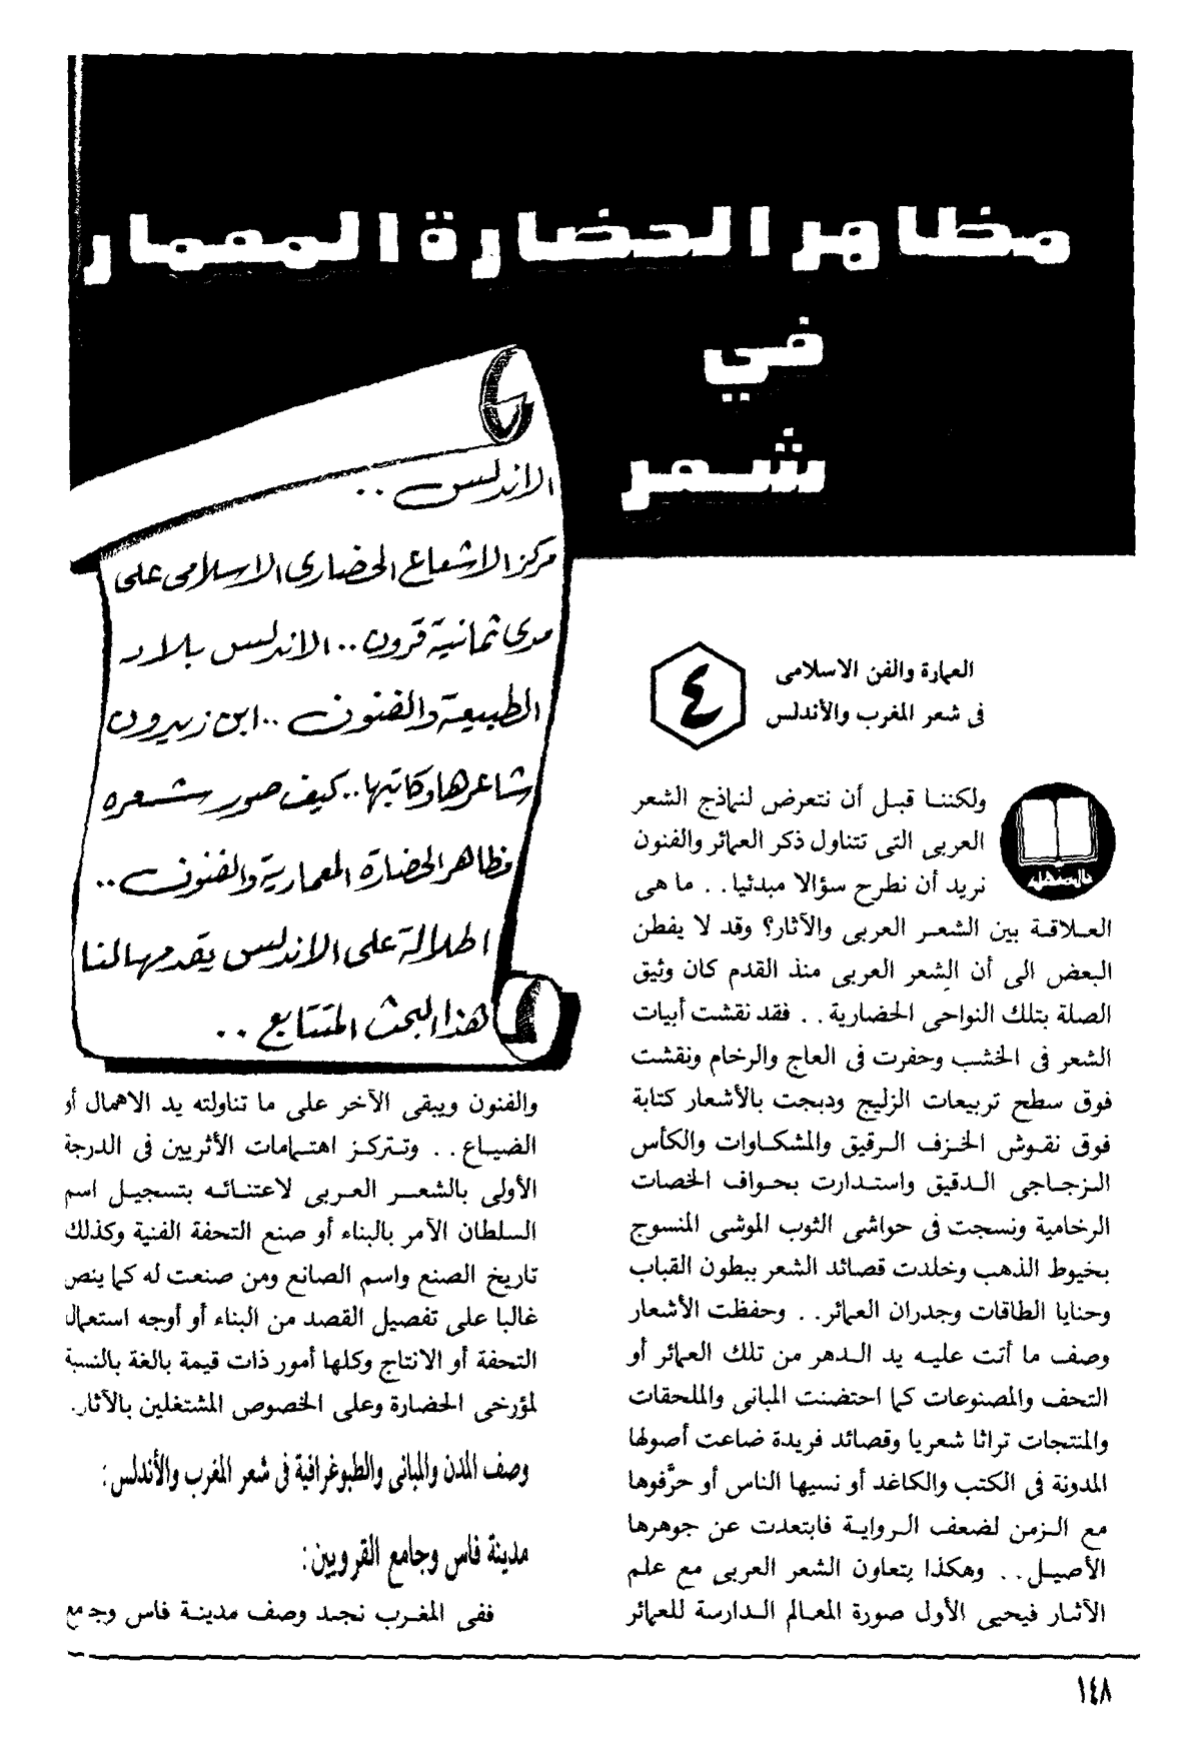 مظاهر الحضارة المعمار
في
شعر
الاندلس ..
مركز الاشعاع الحضارى الاسلامى على
مدى ثمانية قرون .. الاندلس بلاد
الطبيعة والفنون .. ابن زيدون
شاعرها وكاتبها .. كيف صور شعره
مظاهر الحضارة المعمارية والفنون ..
اطلالة على الاندلس يقدمها لنا
هذا البحث المتتابع ..
٤
العمارة والفن الاسلامى
فى شعر المغرب والأندلس
ولكننا قبل أن نتعرض لنماذج الشعر
العربى التى تتناول ذكر العمائر والفنون
نريد أن نطرح سؤالا مبدئيا . . ما هى
العلاقة بين الشعر العربى والآثار؟ وقد لا يفطن
البعض الى أن الشعر العربى منذ القدم كان وثيق
الصلة بتلك النواحى الحضارية . . فقد نقشت أبيات
الشعر فى الخشب وحفرت فى العاج والرخام ونقشت
فوق سطح تربيعات الزليج ودبجت بالأشعار كتابة
فوق نقوش الخزف الرقيق والمشكاوات والكأس
الزجاجى الدقيق واستدارت بحواف الخصات
الرخامية ونسجت فى حواشى الثوب الموشى المنسوج
بخيوط الذهب وخلدت قصائد الشعر ببطون القباب
وحنايا الطاقات وجدران العمائر. . وحفظت الأشعار
وصف ما أتت عليه يد الدهر من تلك العمائر أو
التحف والمصنوعات كما احتضنت المبانى والملحقات
والمنتجات تراثا شعريا وقصائد فريدة ضاعت أصولها
المدونة فى الكتب والكاغد أو نسيها الناس أو حرَّفوها
مع الزمن لضعف الرواية فابتعدت عن جوهرها
الأصيل. . وهكذا يتعاون الشعر العربى مع علم
الآثار فيحيى الأول صورة المعالم الدارسة للعمائر
والفنون ويبقى الآخر على ما تناولته يد الاهمال أو
الضياع . . وتتركز اهتمامات الأثريين فى الدرجة
الأولى بالشعر العربى لاعتنائه بتسجيل اسم
السلطان الآمر بالبناء أو صنع التحفة الفنية وكذلك
تاريخ الصنع واسم الصانع ومن صنعت له كما ينص
غالبا على تفصيل القصد من البناء أو أوجه استعمال
التحفة أو الانتاج وكلها أمور ذات قيمة بالغة بالنسبة
لمؤرخى الحضارة وعلى الخصوص المشتغلين بالآثار.
وصف المدن والمبانى والطبوغرافية فى شعر المغرب والأندلس:
مدينة فاس وجامع القرويين:
ففى المغرب نجد وصف مدينة فاس وجامع
١٤٨